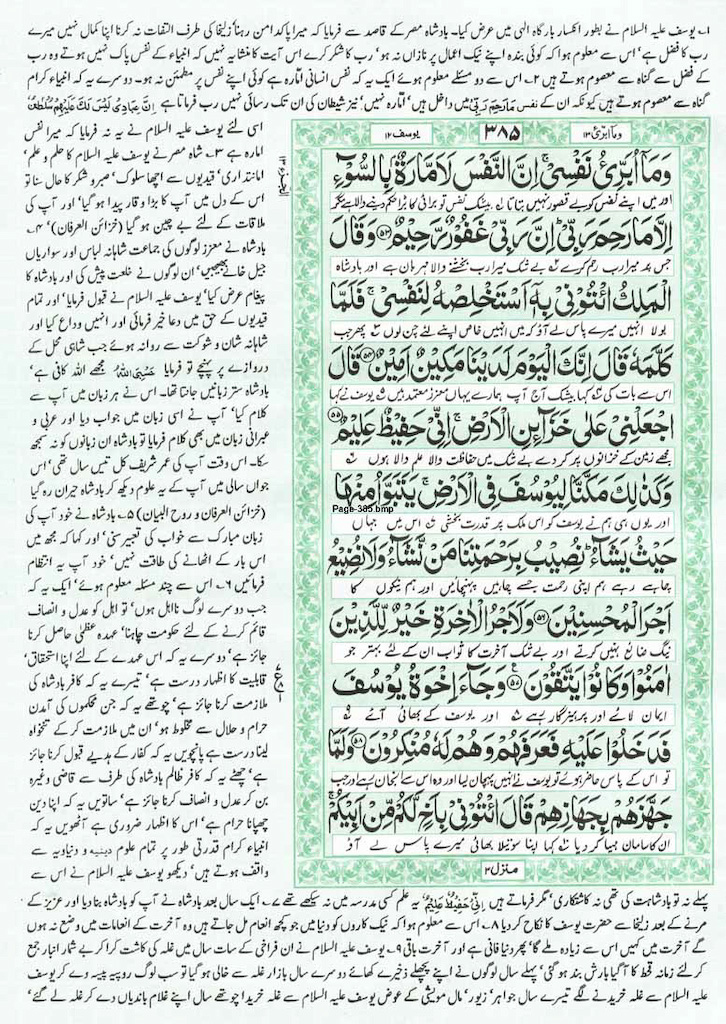 ۱۔ یوسف علیہ السلام نے بطور انکسار بارگاہ الٰہی میں عرض کیا۔ بادشاہ مصر کے قاصد سے فرمایا کہ میرا پاکدامن رہنا' زلیخا کی طرف التفات نہ کرنا اپنا کمال نہیں میرے
رب کا فضل ہے' اس سے معلوم ہوا کہ کوئی بندہ اپنے نیک اعمال پر نازاں نہ ہو' رب کا شکر کرے اس آیت کا منشا یہ نہیں کہ انبیاء کے نفس پاک نہیں ہوتے وہ رب
کے فضل سے گناہ سے معصوم ہوتے ہیں ۲۔ اس سے دو مسئلے معلوم ہوئے ایک یہ کہ نفس انسانی امارہ ہے کوئی اپنے نفس پر مطمئن نہ ہو۔ دوسرے یہ کہ انبیاء کرام
گناہ سے معصوم ہوتے ہیں کیونکہ ان کے نفس مَارَحِمَ رَبِّیْ میں داخل ہیں' امارہ نہیں' نیز شیطان کی ان تک رسائی نہیں رب فرماتا ہے اِنَّ عِبَادِیْ لَیْسَ لَکَ عَلَیْهِمْ سُلْطٰنٌ
وما ابرئ ۱۳
۳۸۵
یوسف ۱۲
وَمَاۤ اُبَرِّئُ نَفْسِیْ ۚ اِنَّ النَّفْسَ لَاَمَّارَةٌۢ بِالسُّوْٓءِ
اور میں اپنے نفس کو بے قصور نہیں بتاتا بیشک نفس تو برائی کا بڑا حکم دینے والا ہے مگر
اِلَّا مَا رَحِمَ رَبِّیْ ؕ اِنَّ رَبِّیْ غَفُوْرٌ رَّحِیْمٌ ۵۳ وَقَالَ
جس پر میرا رب رحم کرے بے شک میرا رب بخشنے والا مہربان ہے اور بادشاہ
الْمَلِكُ ائْتُوْنِیْ بِهٖۤ اَسْتَخْلِصْهُ لِنَفْسِیْ ۚ فَلَمَّا
بولا انہیں میرے پاس لے آؤ کہ میں انہیں خاص اپنے لئے چن لوں پھر جب
كَلَّمَهٗ قَالَ اِنَّكَ الْیَوْمَ لَدَیْنَا مَكِیْنٌ اَمِیْنٌ ۵۴ قَالَ
اس سے بات کی کہا بیشک آج آپ ہمارے یہاں معزز معتمد ہیں یوسف نے کہا
اجْعَلْنِیْ عَلٰی خَزَآئِنِ الْاَرْضِ ۚ اِنِّیْ حَفِیْظٌ عَلِیْمٌ ۵۵
مجھے زمین کے خزانوں پر کر دے بے شک میں حفاظت والا علم والا ہوں
وَكَذٰلِكَ مَكَّنَّا لِیُوْسُفَ فِی الْاَرْضِ ۚ یَتَبَوَّاُ مِنْهَا
Page-385.bmp
اور یوں ہی ہم نے یوسف کو اس ملک پر قدرت بخشی اس میں جہاں
حَیْثُ یَشَآءُ ؕ نُصِیْبُ بِرَحْمَتِنَا مَنْ نَّشَآءُ وَلَا نُضِیْعُ
چاہے رہے ہم اپنی رحمت جسے چاہیں پہنچائیں اور ہم نیکوں کا
اَجْرَ الْمُحْسِنِیْنَ ۵۶ وَلَاَجْرُ الْاٰخِرَةِ خَیْرٌ لِّلَّذِیْنَ
نیگ ضائع نہیں کرتے اور بے شک آخرت کا ثواب ان کے لئے بہتر جو
اٰمَنُوْا وَكَانُوْا یَتَّقُوْنَ ۵۷ وَجَآءَ اِخْوَةُ یُوْسُفَ
ایمان لائے اور پرہیزگار رہے اور یوسف کے بھائی آئے
فَدَخَلُوْا عَلَیْهِ فَعَرَفَهُمْ وَهُمْ لَهٗ مُنْكِرُوْنَ ۵۸ وَلَمَّا
تو اس کے پاس حاضر ہوئے تو یوسف نے انہیں پہچان لیا اور وہ اس سے انجان رہے اور جب
جَهَّزَهُمْ بِجَهَازِهِمْ قَالَ ائْتُوْنِیْ بِاَخٍ لَّكُمْ مِّنْ اَبِیْكُمْ ۚ
ان کا سامان مہیا کر دیا کہا اپنا سوتیلا بھائی میرے پاس لے آؤ
منزل ۳
اسی لئے یوسف علیہ السلام نے یہ نہ فرمایا کہ میرا نفس
امارہ ہے ۳۔ شاہ مصر نے یوسف علیہ السلام کا حلم و علم'
امانتداری' قیدیوں سے اچھا سلوک' صبر و شکر کا حال سنا تو
اس کے دل میں آپ کا بڑا وقار پیدا ہو گیا' اور آپ کی
ملاقات کے لئے بے چین ہو گیا (خزائن العرفان) ۴۔
بادشاہ نے معزز لوگوں کی جماعت شاہانہ لباس اور سواریاں
جیل خانے بھیجیں' ان لوگوں نے خلعت پیش کی اور بادشاہ کا
پیغام عرض کیا' یوسف علیہ السلام نے قبول فرمایا' اور تمام
قیدیوں کے حق میں دعا خیر فرمائی اور انہیں وداع کیا اور
شاہانہ شان و شوکت سے روانہ ہوئے جب شاہی محل کے
دروازے پر پہنچے تو فرمایا حَسْبِیَ اللّٰهُ مجھے اللہ کافی ہے'
بادشاہ ستر زبانیں جانتا تھا۔ اس نے ہر زبان میں آپ سے
کلام کیا' آپ نے اسی زبان میں جواب دیا اور عربی و
عبرانی زبان میں بھی کلام فرمایا تو بادشاہ ان زبانوں کو نہ سمجھ
سکا۔ اس وقت آپ کی عمر شریف کل تیس سال تھی' اس
جواں سالی میں آپ کے یہ علوم دیکھ کر بادشاہ حیران رہ گیا
(خزائن العرفان و روح البیان) ۵۔ بادشاہ نے خود آپ کی
زبان مبارک سے خواب کی تعبیر سنی' اور کہا کہ مجھ میں
اس بار کے اٹھانے کی طاقت نہیں' خود آپ یہ انتظام
فرمائیں ۶۔ اس سے چند مسئلہ معلوم ہوئے' ایک یہ کہ
جب دوسرے لوگ نااہل ہوں' تو اہل کو عدل و انصاف
قائم کرنے کے لئے حکومت چاہنا' عہدہ عظمٰی حاصل کرنا
جائز ہے' دوسرے یہ کہ اس عہدے کے لئے اپنا استحقاق'
قابلیت کا اظہار درست ہے' تیسرے یہ کہ کافر بادشاہ کی
ملازمت کرنا جائز ہے' چوتھے یہ کہ جن محکموں کی آمدن
حرام و حلال سے مخلوط ہو' ان میں ملازمت کر کے تنخواہ
لینا درست ہے پانچویں یہ کہ کفار کے ہدیے قبول کرنا جائز
ہے' چھٹے یہ کہ کافر ظالم بادشاہ کی طرف سے قاضی وغیرہ
بن کر عدل و انصاف کرنا جائز ہے' ساتویں یہ کہ اپنا دین
چھپانا حرام ہے' اس کا اظہار ضروری ہے آٹھویں یہ کہ
انبیاء کرام قدرتی طور پر تمام علوم دینیہ و دنیاویہ سے
واقف ہوتے ہیں' دیکھو یوسف علیہ السلام نے اس سے
پہلے نہ تو بادشاہت کی تھی نہ کاشتکاری' مگر فرماتے ہیں اِنِّیْ حَفِیْظٌ عَلِیْمٌ یہ علم کسی مدرسہ میں نہ سیکھے تھے ۷۔ ایک سال بعد بادشاہ نے آپ کو بادشاہ بنا دیا اور عزیز کے
مرنے کے بعد زلیخا سے حضرت یوسف کا نکاح کر دیا ۸۔ اس سے معلوم ہوا کہ نیک کاروں کو دنیا میں جو کچھ انعام مل جاتے ہیں وہ آخرت کے انعامات میں وضع نہ ہوں
گے آخرت میں کہیں اس سے زیادہ ملے گا' پھر دنیا فانی ہے اور آخرت باقی ۹۔ یوسف علیہ السلام نے ان فراخی کے سات سال میں غلہ کی کاشت کرا کر بے شمار انبار جمع
کر لئے زمانہ قحط کا آ گیا بارش بند ہو گئی' پہلے سال لوگوں نے اپنے پچھلے ذخیرے کھائے دوسرے سال بازار غلہ سے خالی ہو گیا تو سب لوگ روپیہ پیسہ دے کر یوسف
علیہ السلام سے غلہ خریدنے لگے تیسرے سال جواہر' زیور' مال مویشی کے عوض یوسف علیہ السلام سے غلہ خریدا چوتھے سال اپنے غلام باندیاں دے کر غلہ لے گئے'